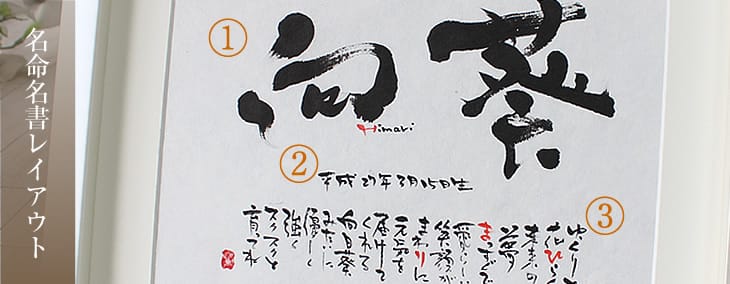 名命名書レイアウト
①
向葵
Himari
②
平成27年3月15日生
③
ゆっくりと
花ひらく
未来への
夢
まっすぐで
愛らしい
笑顔が
まわりに
元気を
届けて
くれる
向日葵
みたいに
優しく
強く
スクスクと
育ってね